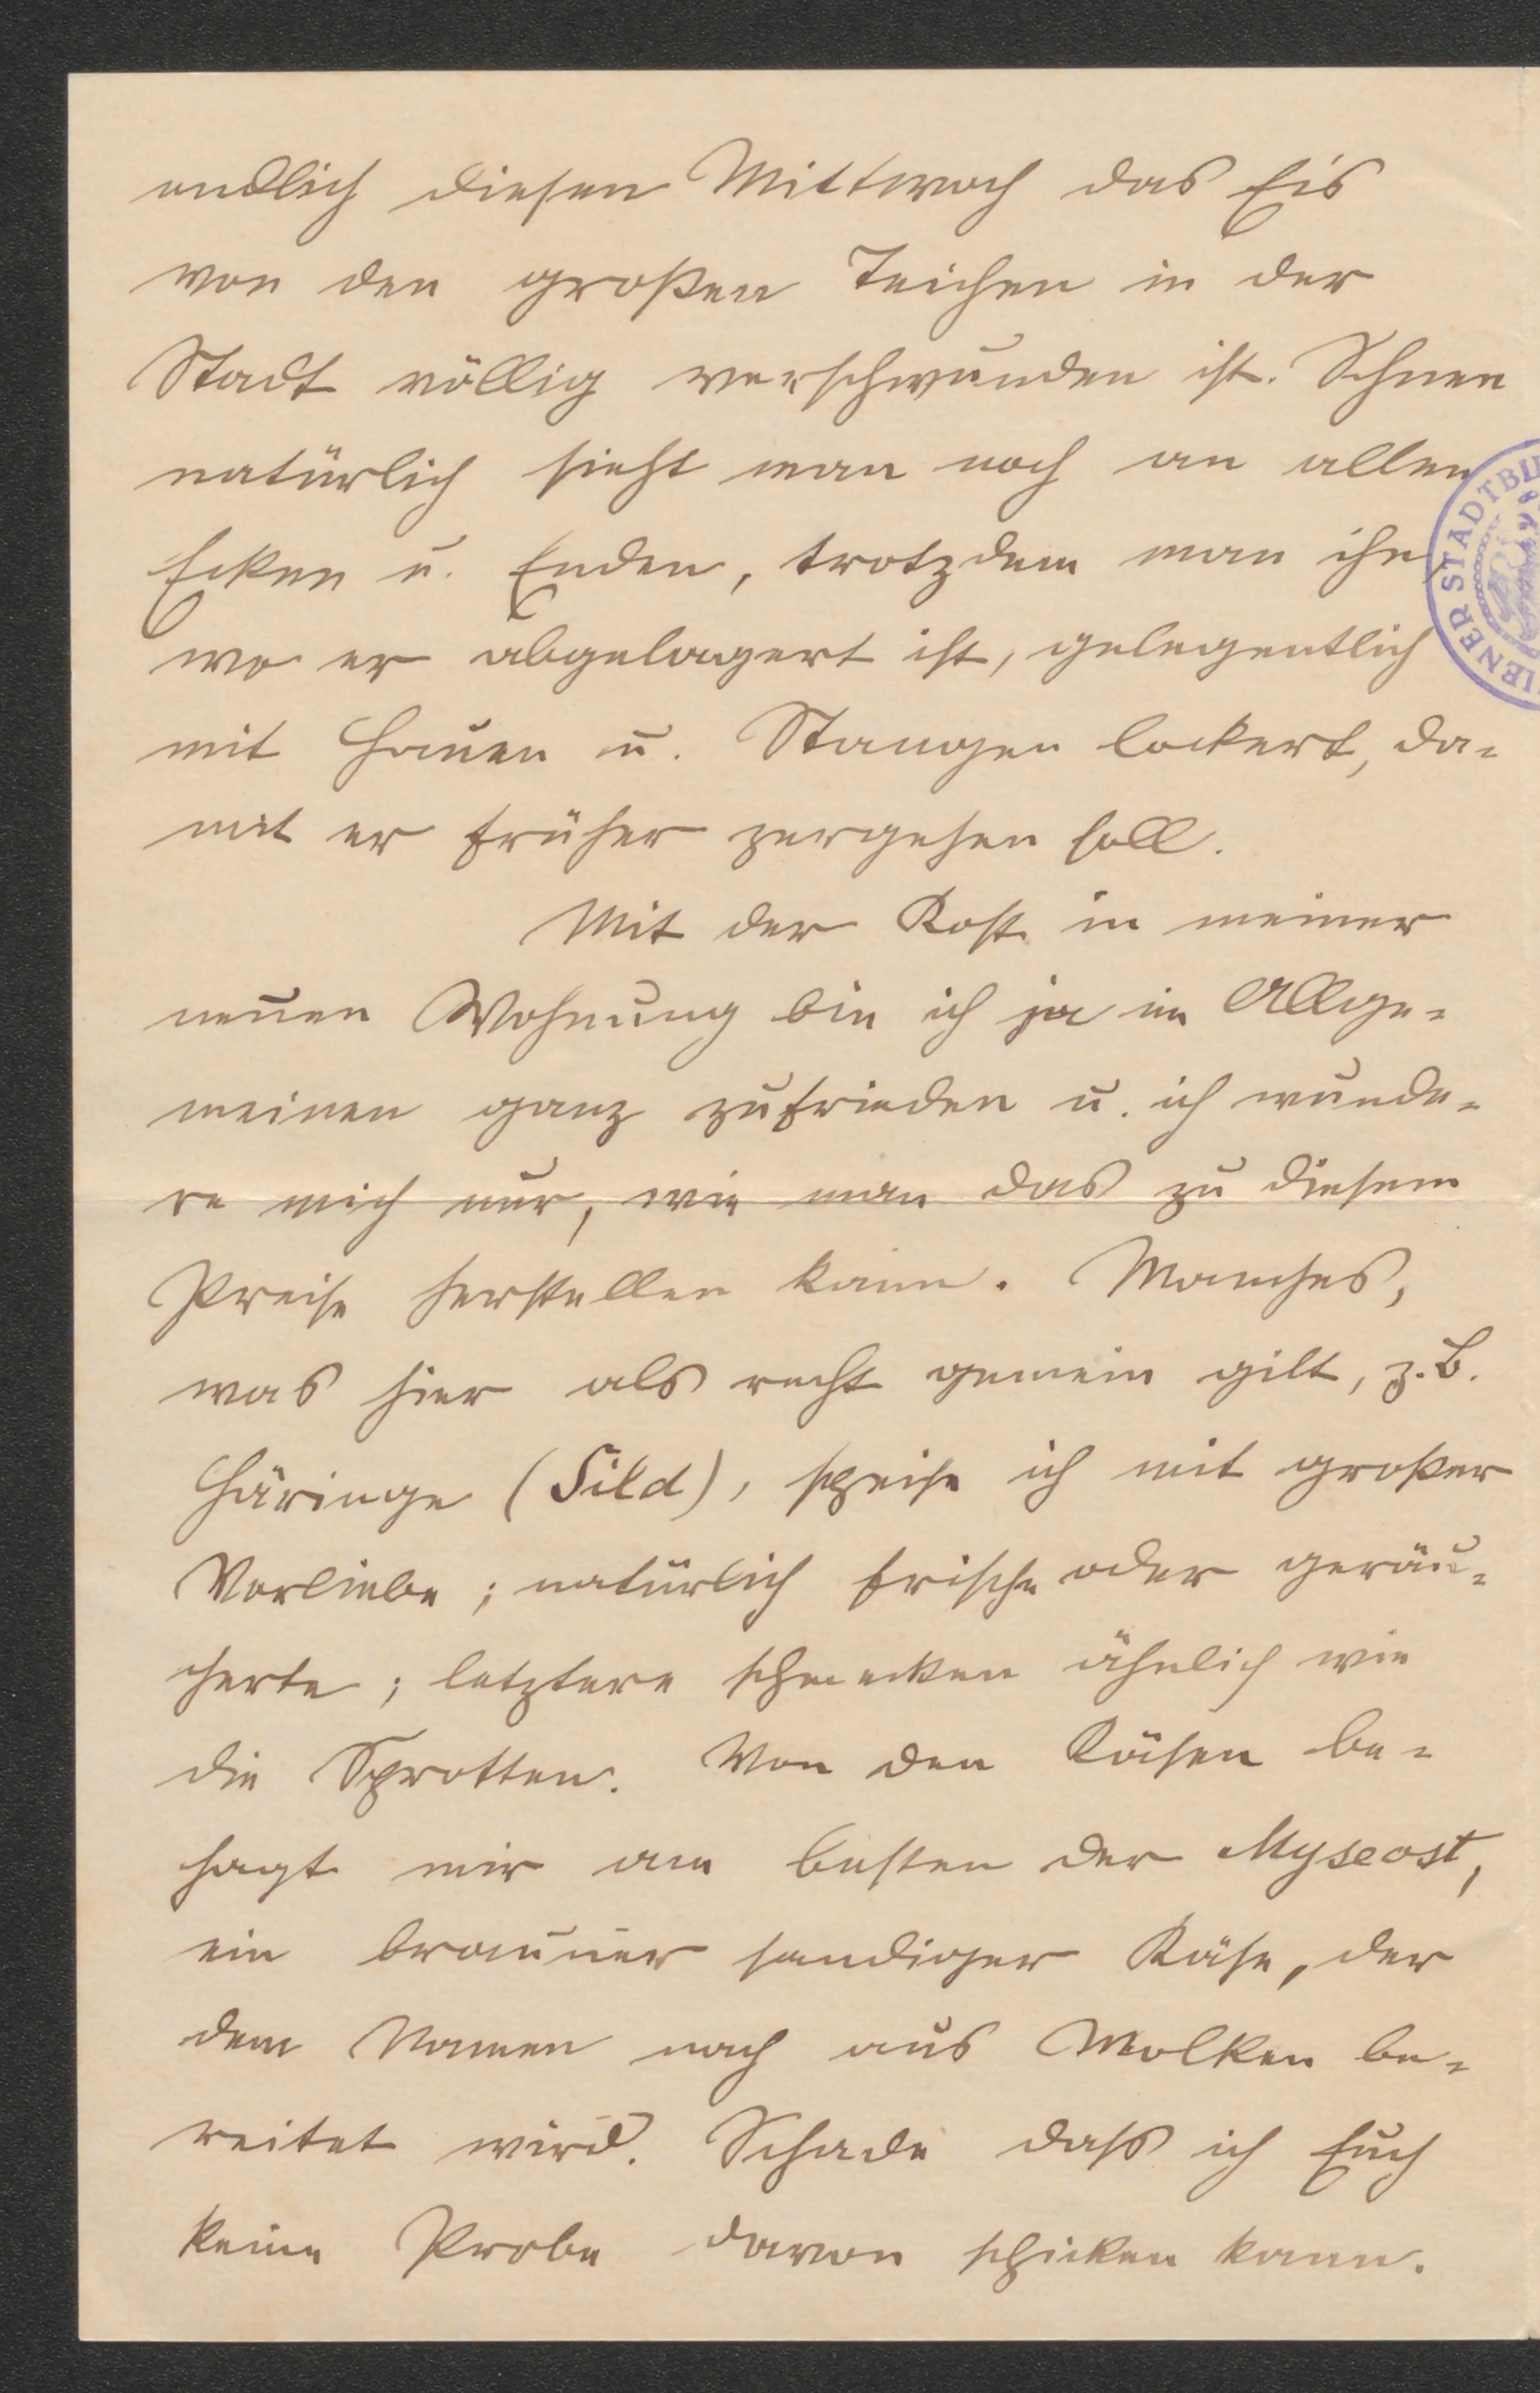 endlich diesen Mittwoch das Eis
von den großen Teichen in der
Stadt völlig verschwunden ist. Schnee
natürlich sieht man noch an allen
Ecken u. Enden, trotzdem man ihn
wo er abgelagert ist, gelegentlich
mit Hauen u. Stangen lockert, da-
mit er früher zergehen soll.
Mit der Kost in meiner
neuen Wohnung bin ich ja im Allge-
meinen ganz zufrieden u. ich wunde-
re mich nur, wie man das zu diesem
Preise herstellen kann. Manches,
was hier als recht gemein gilt, z.B.
Häringe (Sild), speise ich mit großer
Vorliebe; natürlich frische oder geräu-
cherte; letztere schmecken ähnlich wie
die Sprotten. Von den Käsen be-
hagt mir am besten der Myseost,
ein brauner sandiger Käse, der
dem Namen nach aus Molken be-
reitet wird. Schade dass ich Euch
keine Probe davon schicken kann.
IENER STADTBI